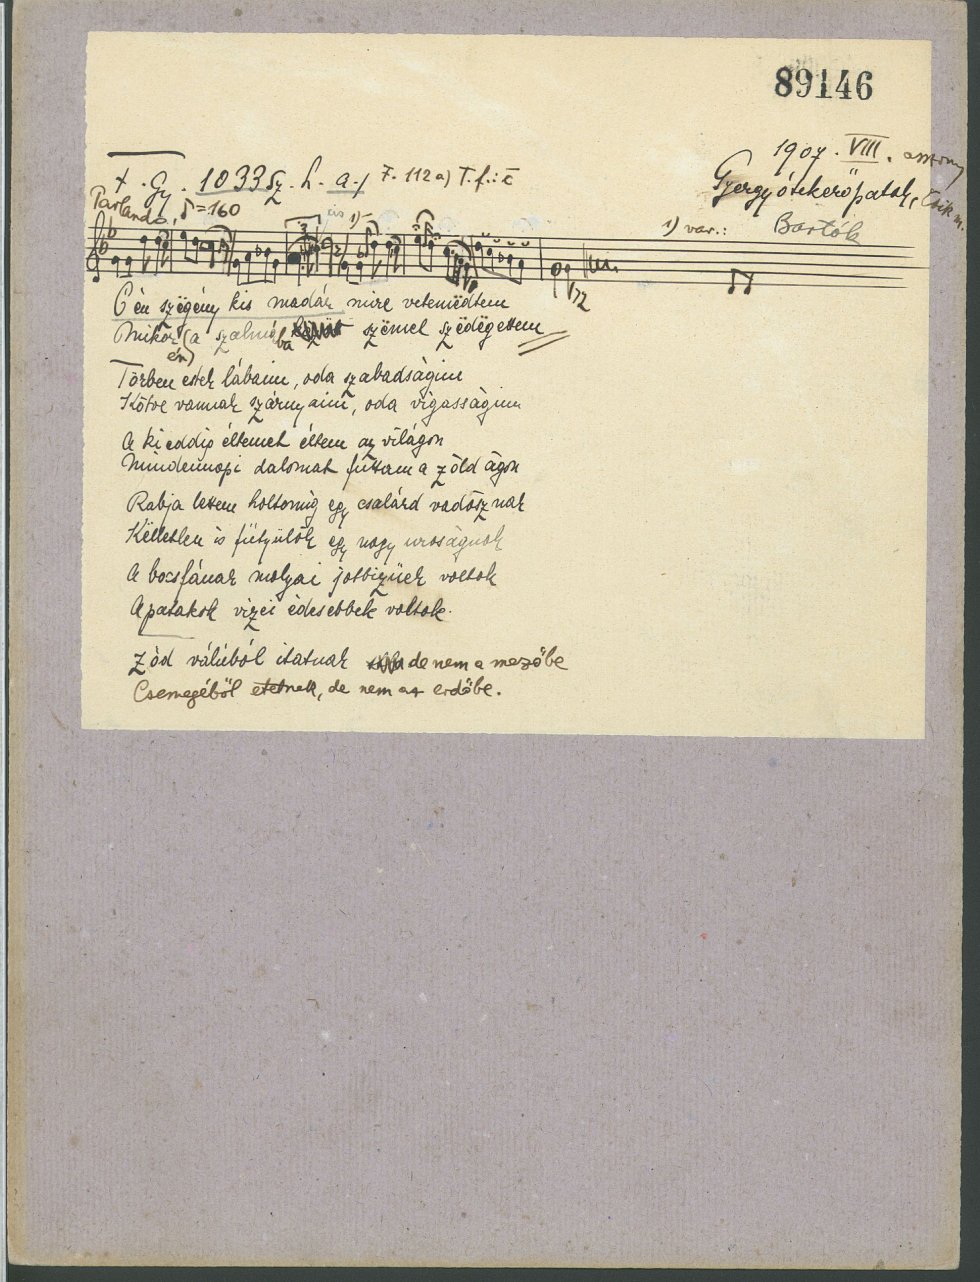 89146
1907. VIII. asszony
Gyergyótekerőpatak, Csík m.
Bartók
+. Gy. 1033 sz. h. a.) F. 112 a) T.f.:
Parlando, ♪=160
cis 1)
1) var.:
3
172
Ó én szëgény kis madár mire vetemëdtem
Mikor (a szalmába szëmet szëdëgettem
én)
Tőrben estek lábaim, oda szabadságim
Kötve vannak szárnyaim, oda vigasságim
A ki eddig éltemet éltem az világon
Mindennapi dalomat futtam a zöld ágon
Rabja lettem holtomig egy csalárd vadősznak
Këlletlen is fütyülők egy nagy uroságnak
A bocsfának molyai jobbizüek voltok
A patakok vizei édesebbek voltok.
Zöd válúból itatnak de nem a mezőbe
Csemegéből etetnek, de nem az erdőbe.